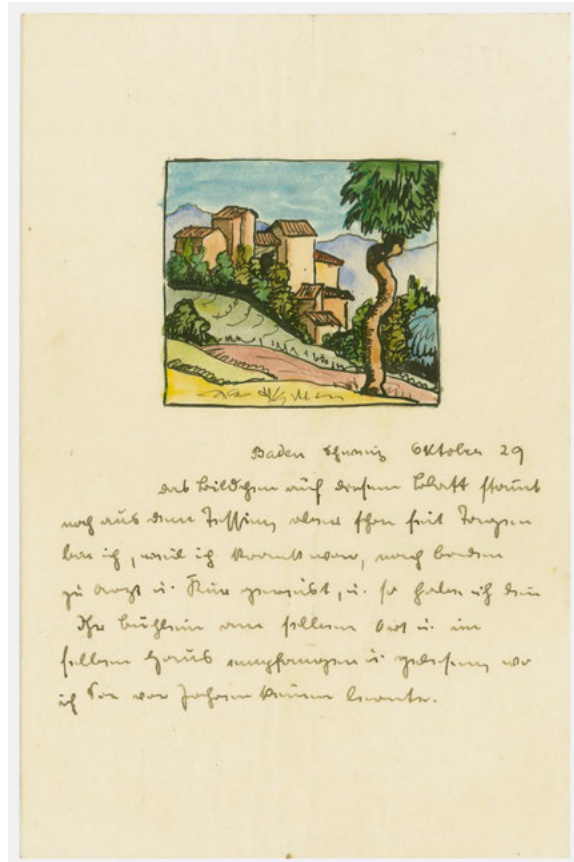 Baden Schweiz Oktober 29
das Bildchen auf diesem Blatt stammt
noch aus dem Tessin, aber schon seit Tagen
bin ich, weil ich krank war, nach Baden
zu Arzt u. Kur gereist, u. so habe ich denn
Ihr Büchlein am selben Ort u. im
selben Haus empfangen u. gelesen, wo
ich Sie vor Jahren kennen lernte.